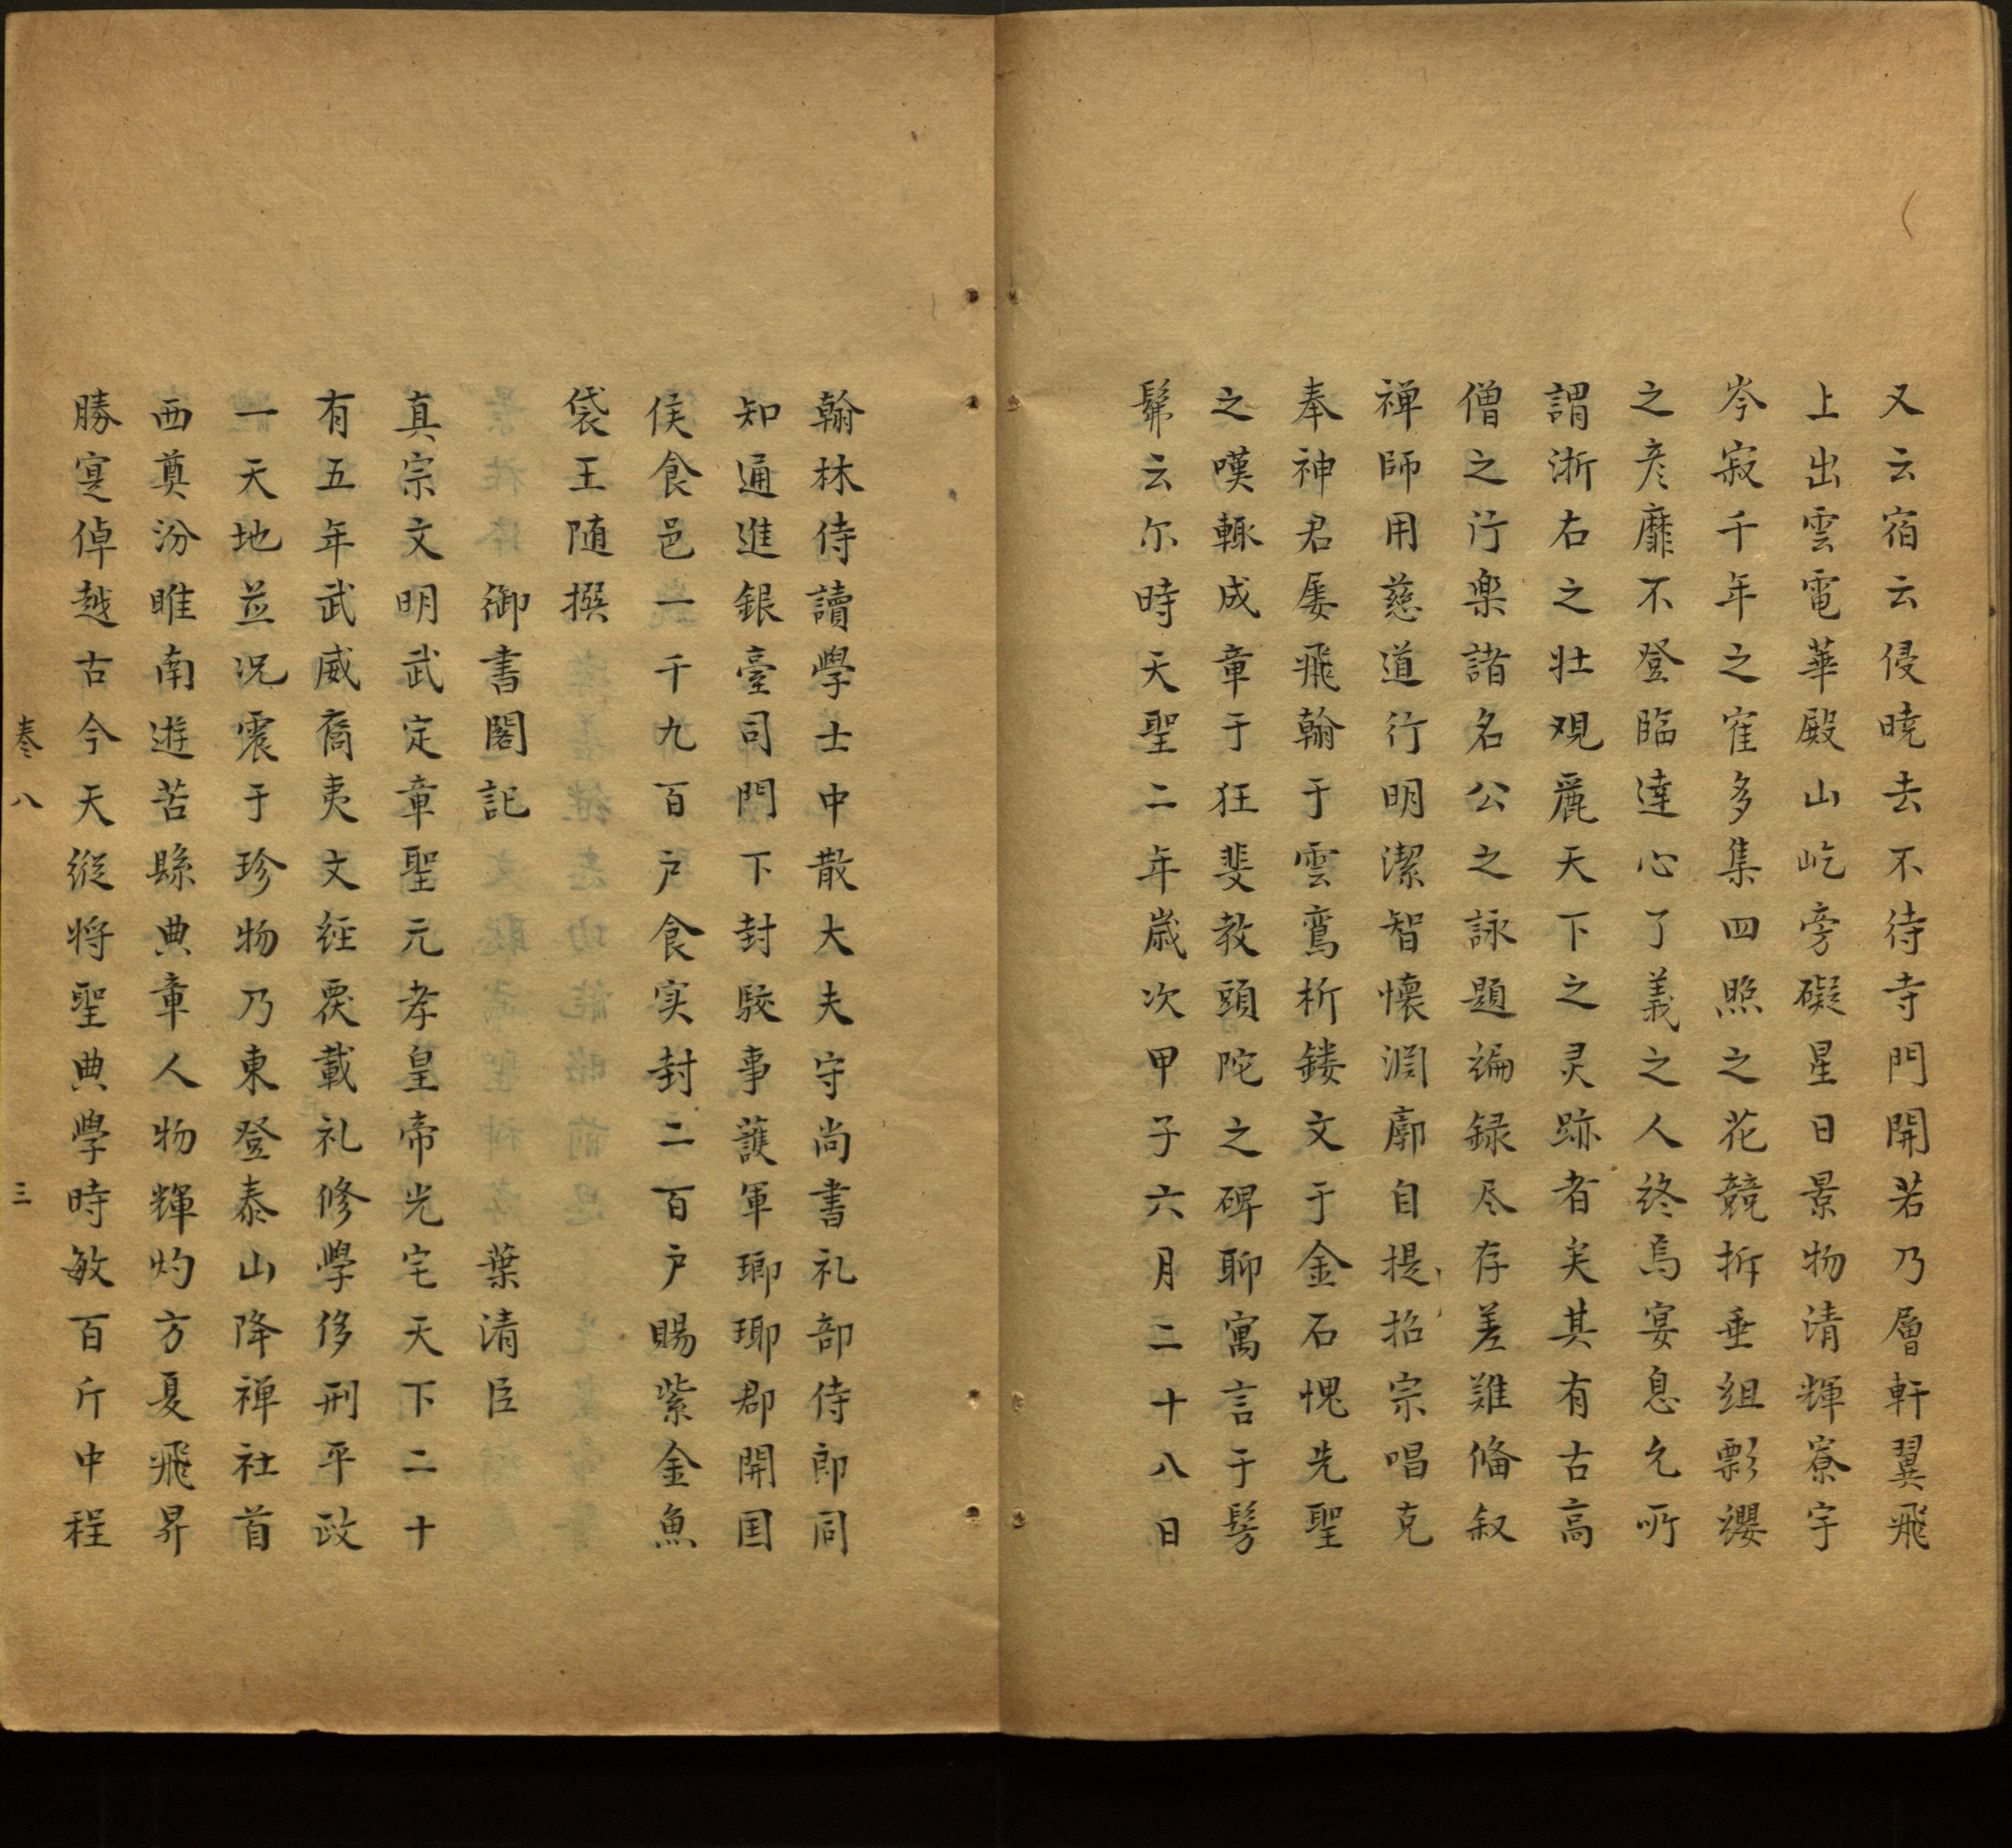 又云宿云侵暁去不待寺門開若乃層軒翼飛
上出雲電華殿山屹旁礙星日景物清輝寮宇
岑寂千年之隺多集四照之花競拆垂組影纓
之彦靡不登臨達心了義之人終焉宴息允所
謂浙右之壯观麗天下之灵跡者矣其有古高
僧之行楽諸名公之詠題遍録尽存差難俻叙
禅師用慈道行明潔智懷淵廓自提招宗唱克
奉神君屡飛翰于雲鸞析鏤文于金石愧先聖
之嘆輙成章于狂斐教頭陀之碑聊寓言于髣
髴云尔時天聖二年歳次甲子六月二十八日
翰林侍讀學士中散大夫守尚書礼部侍郎同
知通進銀臺司門下封駮事護軍瑯琊郡開国
侯食邑一千九百户食实封二百户賜紫金魚
袋王随撰
御書閣記 葉清臣
真宗文明武定章聖元孝皇帝光宅天下二十
有五年武威裔夷文經裦載礼修學侈刑平政
一天地並况震于珍物乃東登泰山降禅社首
西奠汾睢南遊苦縣典章人物輝灼方夏飛昇
勝寔倬越古今天縱将聖典學時敏百斤中程
卷八 三